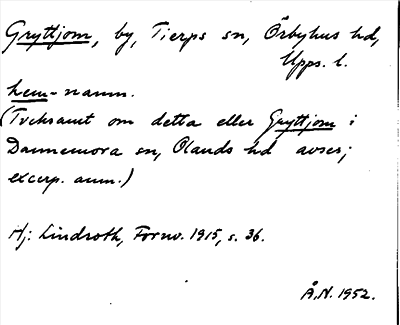 Gryttjom, by, Tierps sn, Örbyhus hd,
Upps. l.
hem-namn.
(Tveksamt om detta eller Gryttjom i
Dannemora sn, Olands hd avses;
excerp. anm.)
Hj: Lindroth, Fornv. 1915, s. 36.
Å.N. 1952.